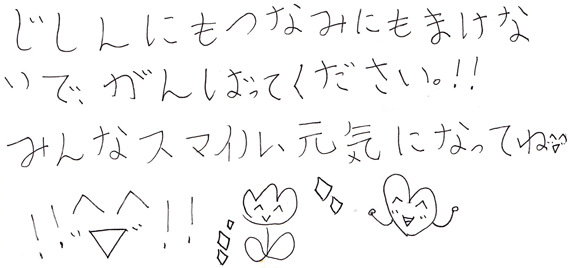 じしんにもつなみにもまけな
いで、がんばってください。!!
みんなスマイル元気になってね
!! !!